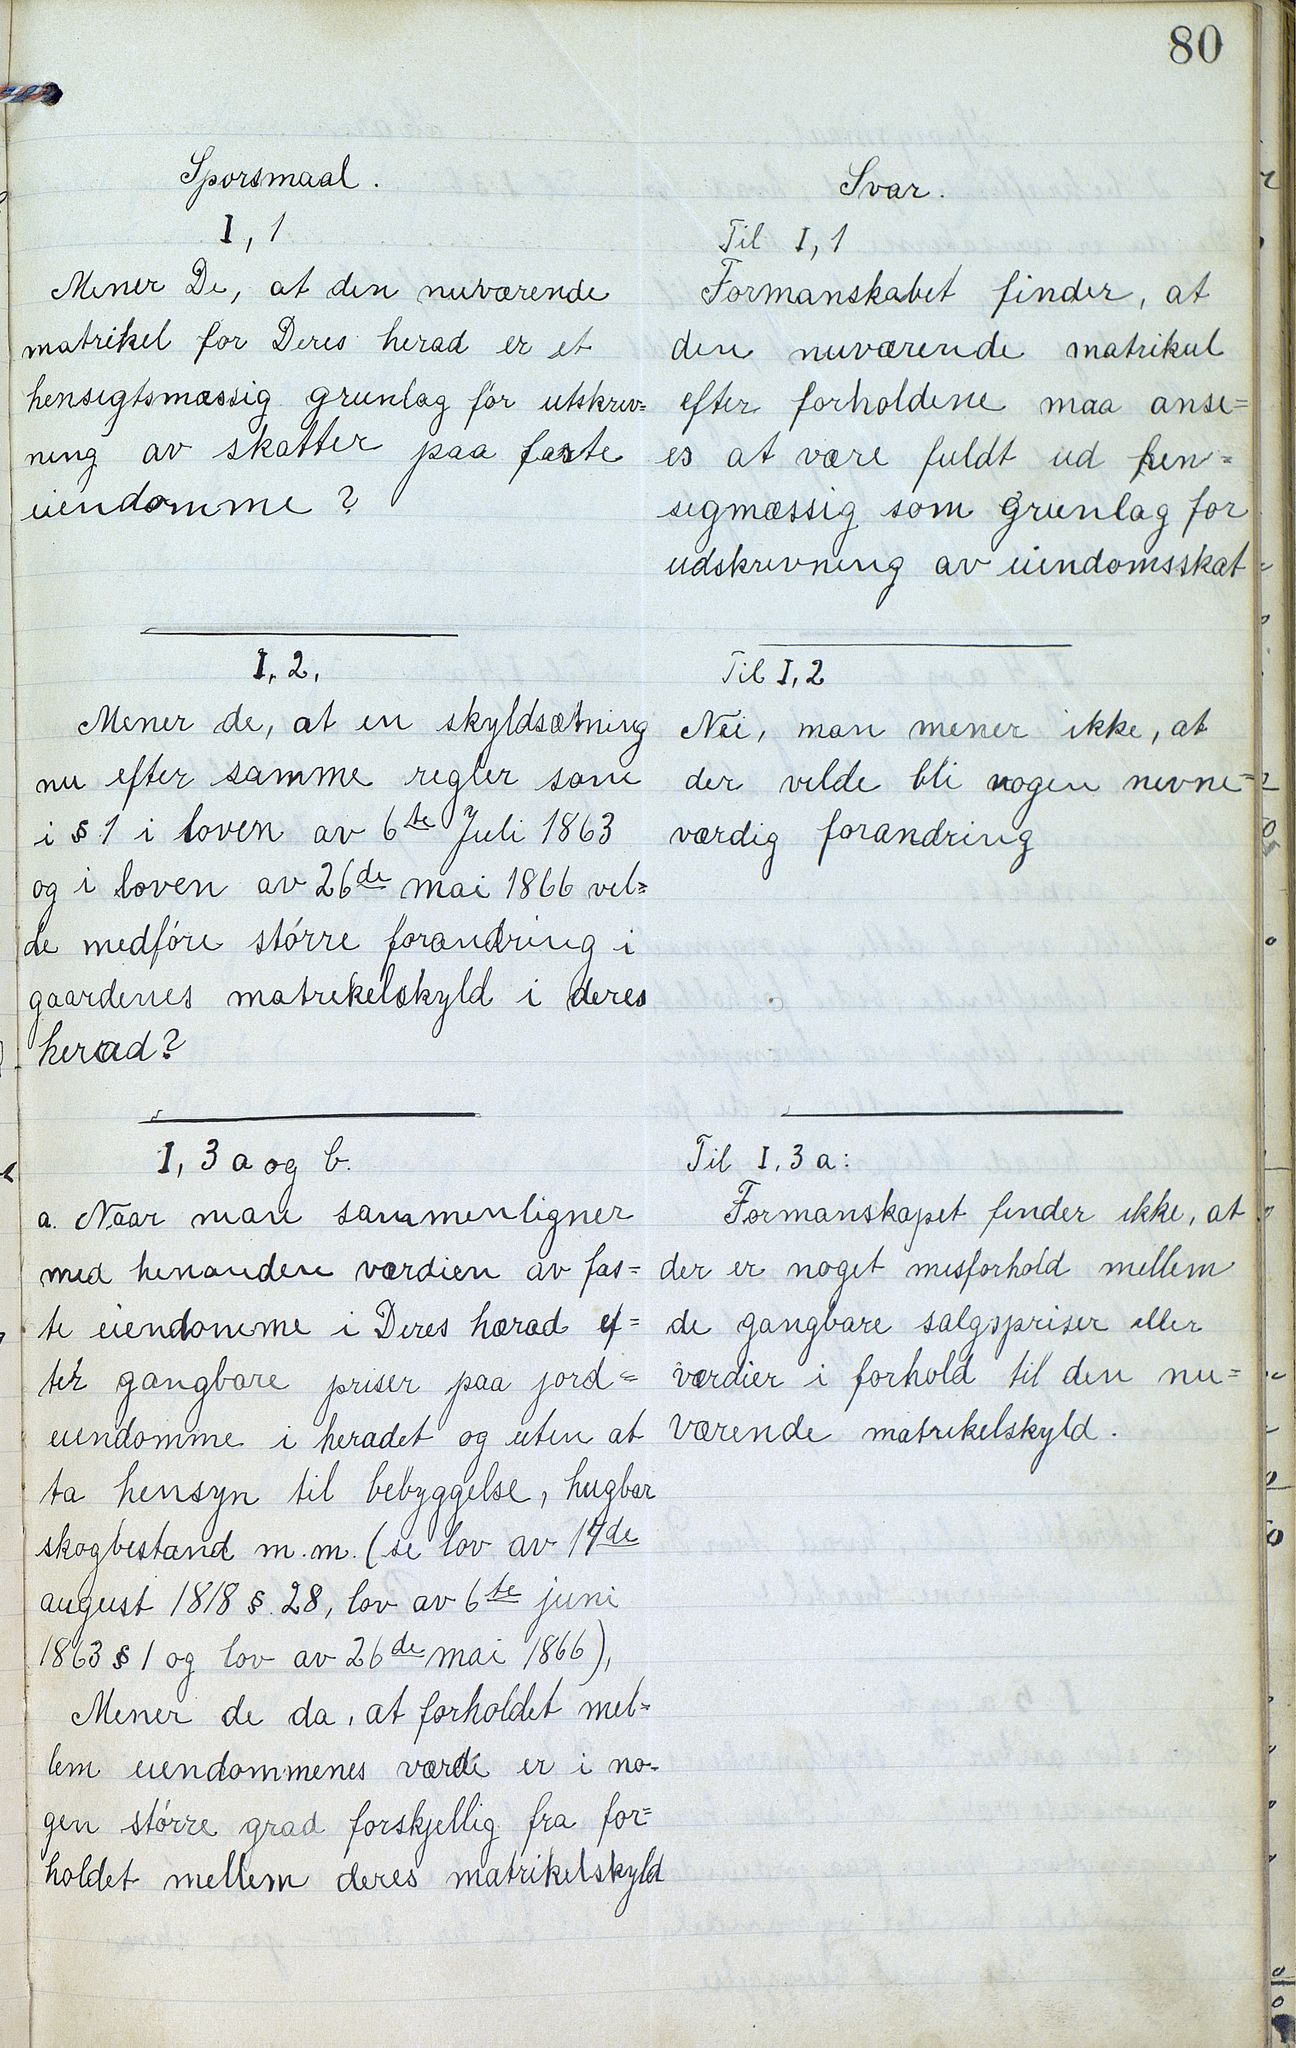 80
Sporsmaal.
I, 1
Mener De, at den nuværende
matrikel for Deres herad er et
hensigtsmæssig grunlag for utskriv=
ning av skatter paa faste
eiendomme?
I, 2,
Mener de, at en skyldsætning
nu efter samme regler som
i § 1 i loven av 6te Juli 1863
og i loven av 26de mai 1866 vil=
de medføre større forandring i
gaardenes matrikelskyld i deres
herad?
I, 3 a og b.
a. Naar man sammenligner
med henanden værdien av fas=
te eiendomme i Deres hærad ef=
ter gangbare priser paa jord=
eiendomme i heradet og uten at
ta hensyn til bebyggelse, hugbar
skogbestand m.m. (se lov av 17de
august 1818 § 28, lov av 6te juni
1863 § 1 og lov av 26de mai 1866),
Mener de da, at forholdet mel=
lem eiendommenes værdi er i no-
gen større grad forskjellig fra for=
holdet mellem deres matrikelskyld
Svar.
Til I, 1
Formanskabet finder, at
den nuværende matrikul
efter forholdene maa anse=
es at være fuldt ud hen=
sigmæssig som grunlag for
udskrivning av eiendomsskat
Til I, 2
Nei, man mener ikke, at
der vilde bli nogen nevne=
værdig forandring
Til I, 3 a:
Formanskapet finder ikke, at
der er noget misforhold mellem
de gangbare salgspriser eller
værdier i forhold til den nu=
værende matrikelskyld.